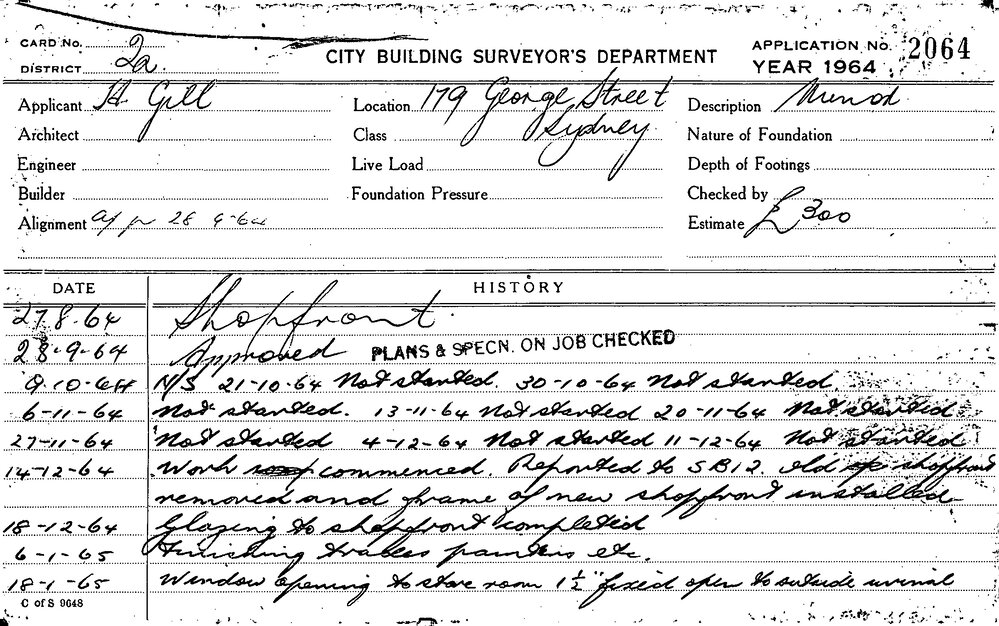 CARD No. 2a
DISTRICT
CITY BUILDING SURVEYOR'S DEPARTMENT
APPLICATION No. 2064
YEAR 1964
Applicant H Gill Location 179 George Street Description Minor
Architect Class Sydney Nature of Foundation
Engineer Live Load Depth of Footings
Builder Foundation Pressure Checked by
Alignment 28 9-64 Estimate £300
DATE HISTORY
27.8-64 Shopfront.
28-9-64 Approved PLANS & SPECN. ON JOB CHECKED
9.10-64 N/S 21-10-64 Not started. 30-10-64 Not started
6-11-64 Not started. 13-11-64 Not started 20-11-64 Not started
27-11-64 Not started 4-12-64 Not started 11-12-64 Not started
14-12-64 Work commenced. Reported to SB12. old shopfront
removed and frame of new shopfront installed
18-12-64 Glazing to shopfront completed
6-1-65 Finishing trades painters etc.
18-1-65 Window opening to store room 1½" fixed open to outside urinal
C of S 9648